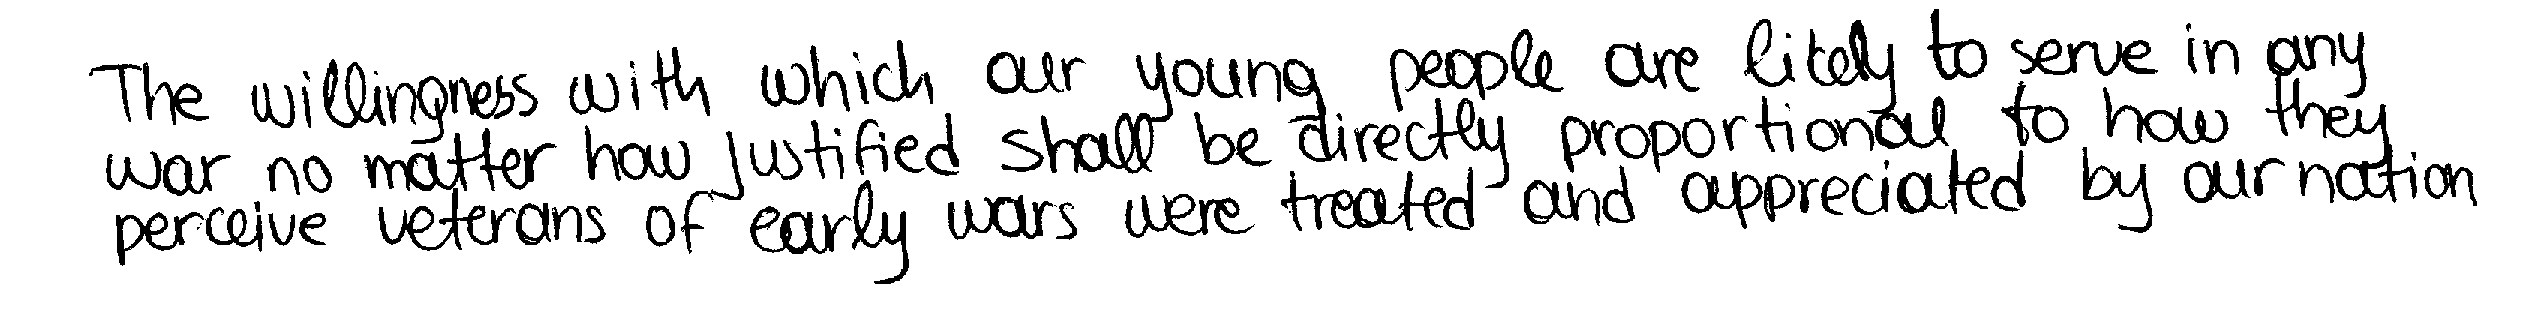 The willingness with which our young people are likely to serve in any
war no matter how justified shall be directly proportional to how they
perceive veterans of early wars were treated and appreciated by our nation